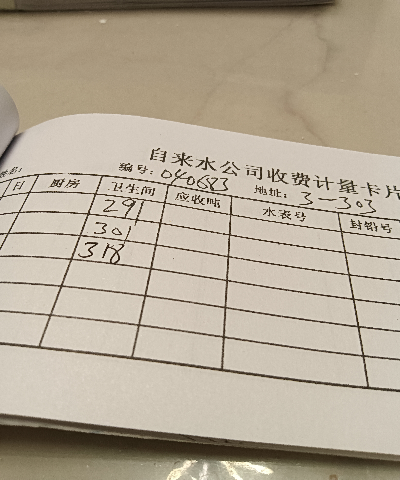 自来水公司收费计量卡片
编号：040683 地址：3-303
日 厨房 卫生间 应收吨 水表号 封铅号
291
301
318